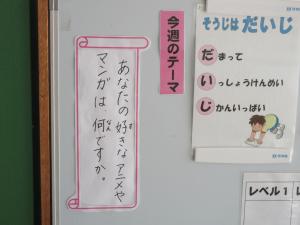 今週のテーマ
あなたの好きなアニメや
マンガは何ですか。
そうじはだいじ
だまって
いっしょうけんめい
じかんいっぱい
レベル1